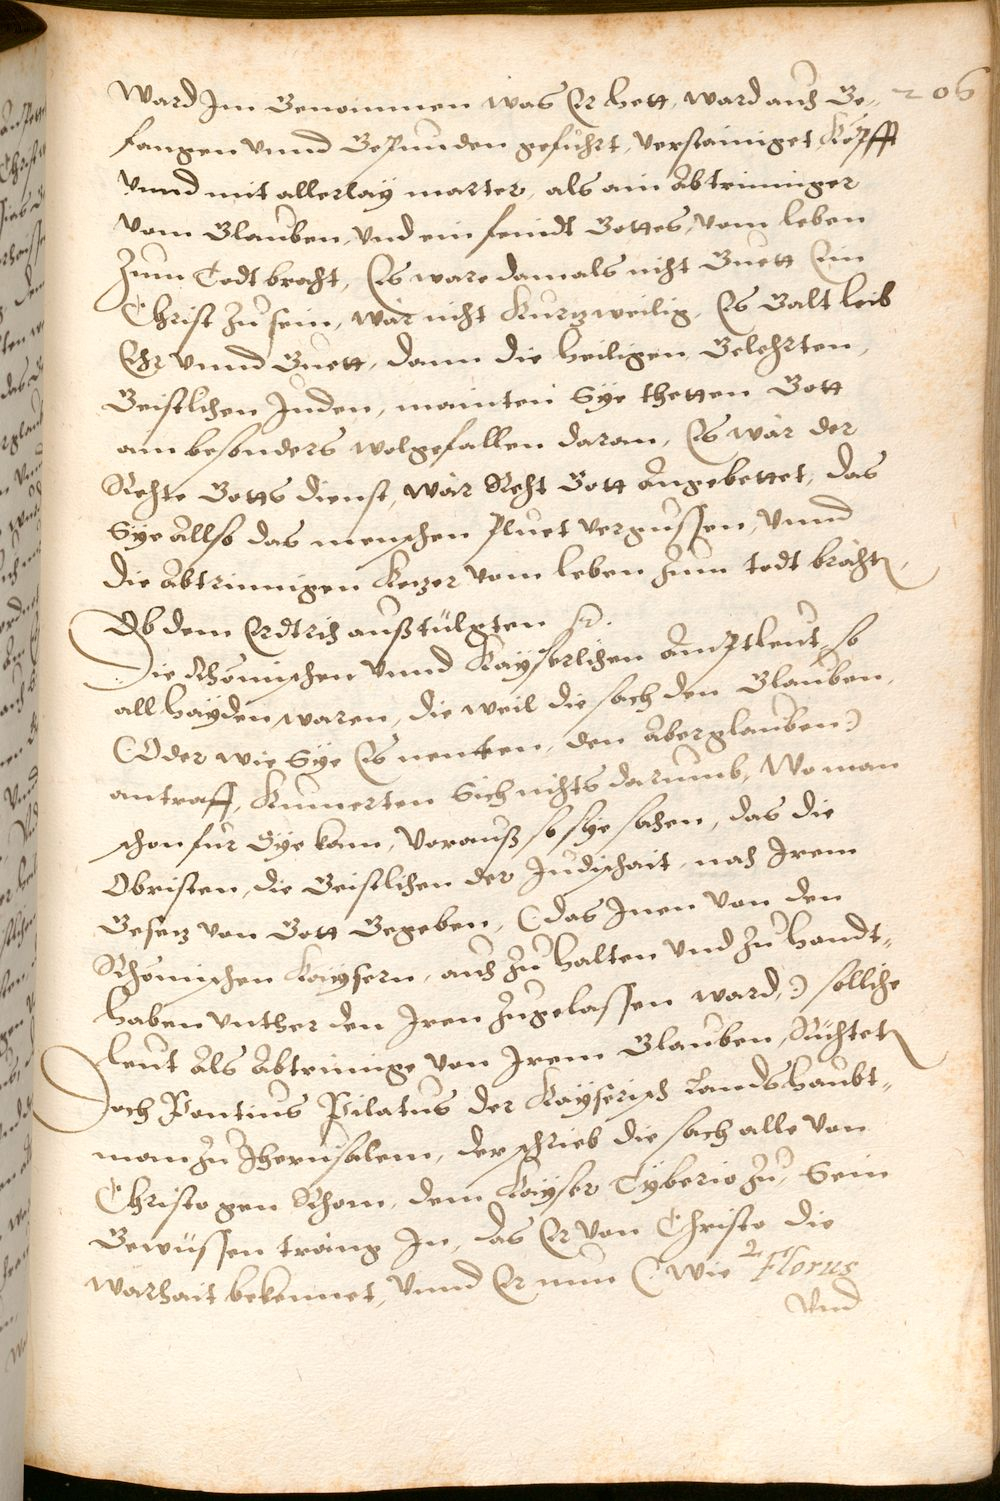 206
Ward Im Genommen was Er hett, ward auch Ge-
fangen vnnd Gepunden geführt, verstainiget, Köpfft
Vnnd mit allerlay marter, als ain Abtrinniger
vom Glauben, Vnd ein feindt Gottes, vom leben
Zum Todt bracht, Es ware damals nicht Guett Ein
Christ zu sein, wär nicht Kurzweilig, Es Galt leib
Ehr vnnd Guett, dann die heiligen, Gelehrten,
Geistlichen Juden, mainten Sye thetten Gott
am besonders wolgefallen daran, Es wär der
Rechte Gotts dienst, wär Recht Gott Angebettet, das
Sye Allso das menschen Pluet vergussen, Vnnd
die Abtrinnigen Kezer vom leben zum todt bräch​ten,
Ob dem Erdtrich außtülgten etc.
Die Rhömischen Vnnd Kayserlichen Amptleut, so
all hayden waren, die weil die sach den Glauben,
(Oder wie Sye Es nenten, den Aberglauben)
antraff, Kumerten Sich nichts darumb, Wo man
schon für Sye kam, Vorauß so sye sahen, das die
Obristen, die Geistlichen der Judischait, nach Irem
Gesez von Gott Gegeben, (das Inen von den
Rhömischen Kaysern, auch zu halten vnd zu handt-
haben vnther den Iren zugelassen ward,) solliche
leut Als Abtrinige von Irem Glauben, Richteten
Doch Pontius Pilatus der Kayserisch Landshaubt-
man zu Jherusalem, der schrieb die sach alle von
Christo gen Rhom, dem Kayser Tyberio zu, Sein
Gewüssen träng In, das Er von Christo die
warhait bekennet, Vnnd Er nun (wie Florus
Vnd